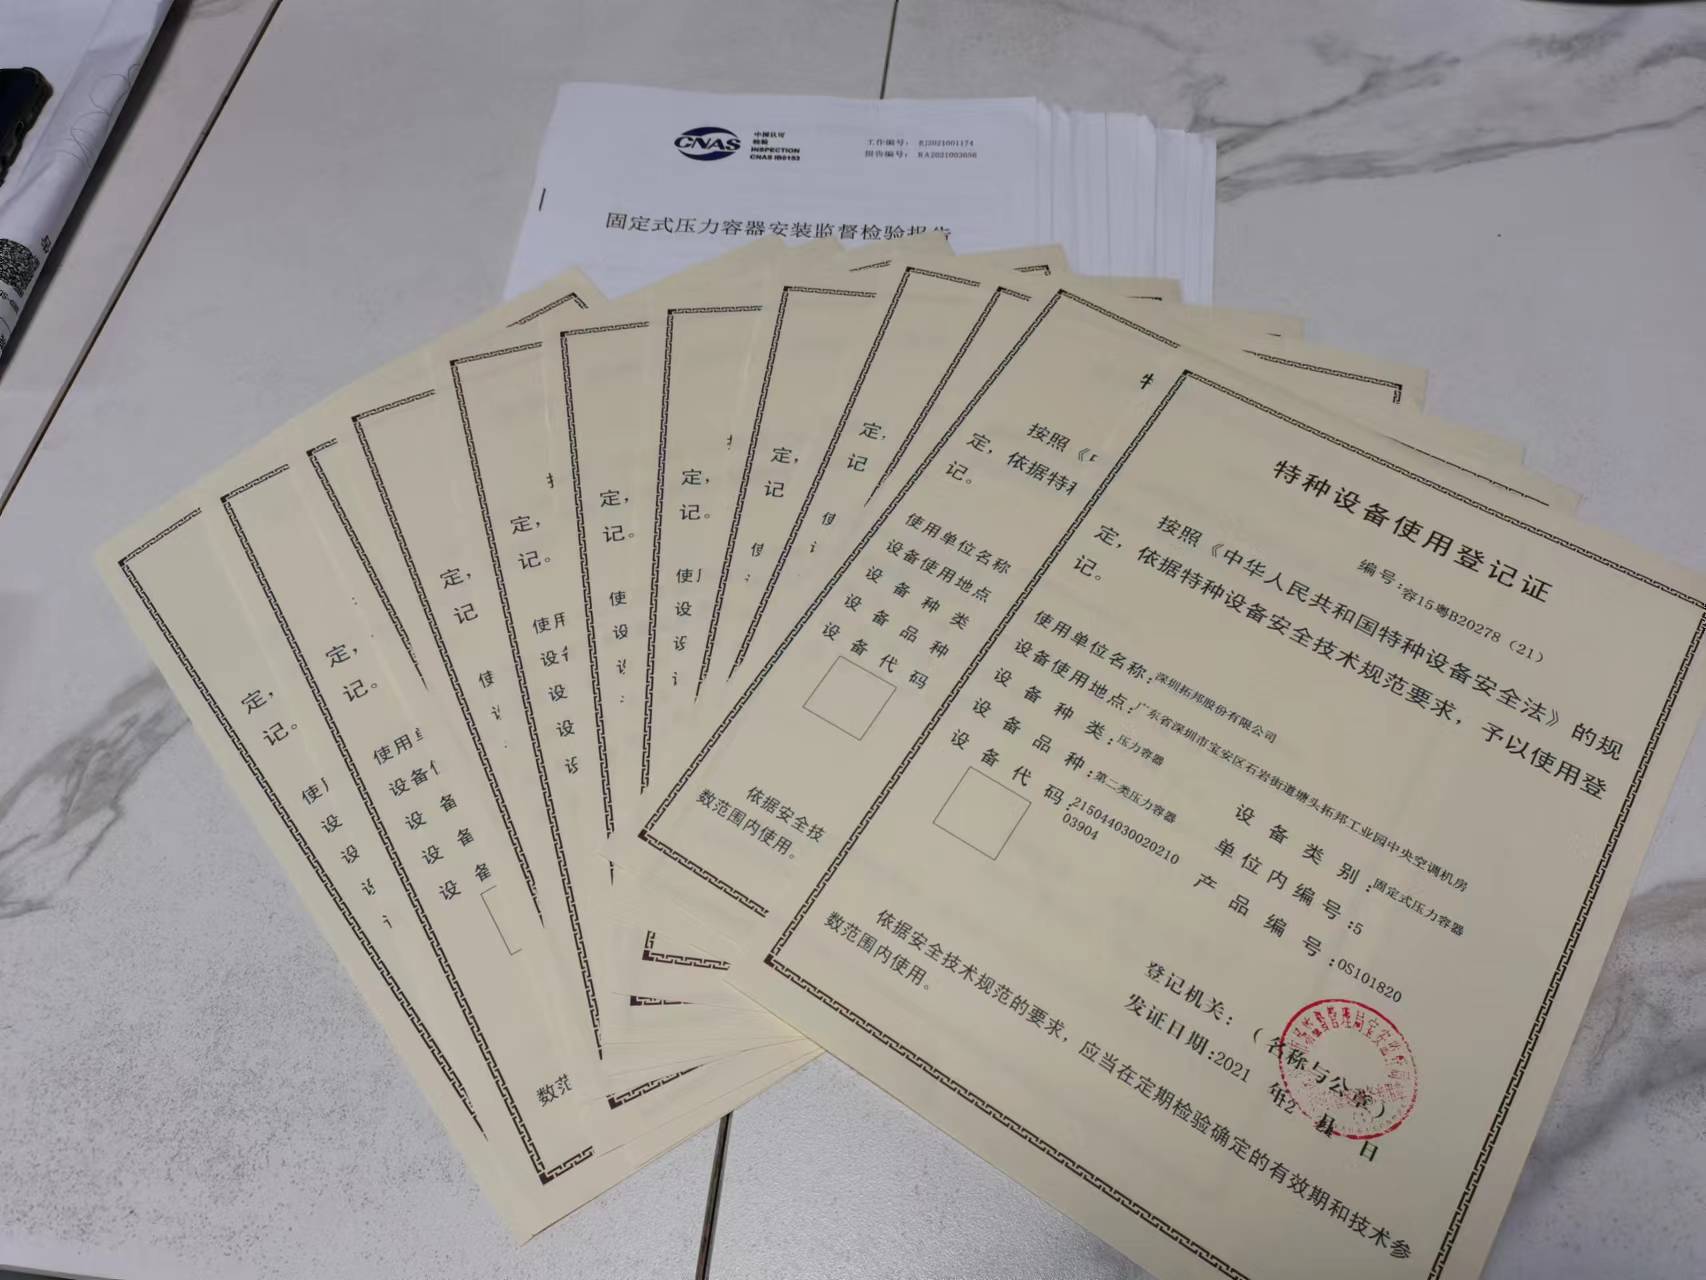 CNAS
中国认可
检验
INSPECTION
CNAS IB0153
工作编号: RJ2021001174
报告编号: RA2021003656
固定式压力容器安装监督检验报告
特种设备使用登记证
编号:容15粤B20278（21）
按照《中华人民共和国特种设备安全法》的规
定，依据特种设备安全技术规范要求，予以使用登
记。
使用单位名称:深圳拓邦股份有限公司
设备使用地点:广东省深圳市宝安区石岩街道塘头拓邦工业园中央空调机房
设备种类:压力容器 设备类别:固定式压力容器
设备品种:第二类压力容器 单位内编号:5
设备代码:215044030020210
03904 产品编号:OS101820
登记机关:（名称与公章）
发证日期:2021 年 月 日
依据安全技术规范的要求，应当在定期检验确定的有效期和技术参
数范围内使用。
按照《中
定，依据特种
记。
使用单位名称
设备使用地点
设备种类
设备品种
设备代码
依据安全技
数范围内使用。
定，
记
定，
记
使
定，
记。
使用
设
定，
记。
使
设
定，
记。
使用
设备
设
设
定，
记
使
定，
记。
使用
设备
设备
设备
设备
数范
定，
记。
使
设
设